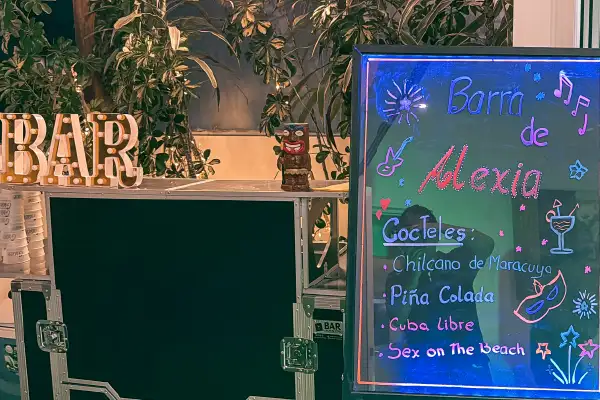 BAR
Barra
de
Alexia
Cocteles:
• Chilcano de Maracuya
• Piña Colada
• Cuba libre
• Sex on The beach
BAR